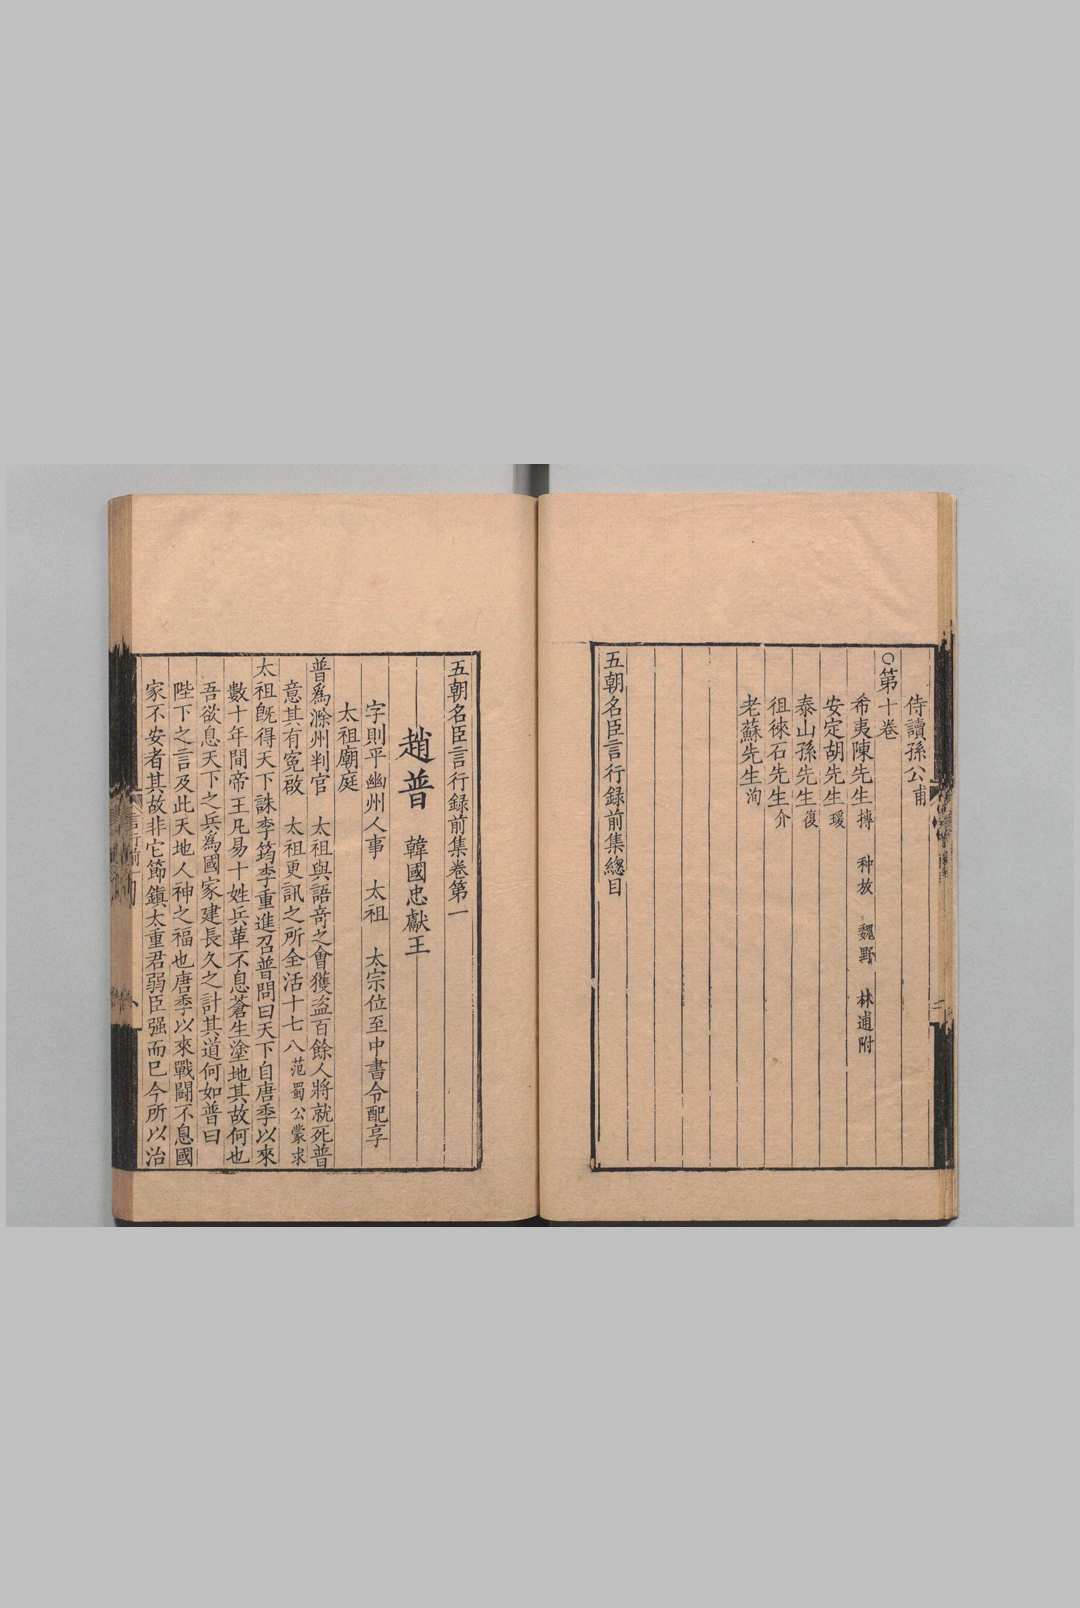 侍讀孫公甫
○第十卷
希夷陳先生摶 种放 魏野 林逋附
安定胡先生瑗
泰山孫先生復
徂徠石先生介
老蘇先生洵
五朝名臣言行録前集總目
二
五朝名臣言行録前集卷第一
趙普 韓國忠獻王
字則平幽州人事 太祖 太宗位至中書令配享
太祖廟庭
普爲滁州判官 太祖與語竒之會獲盗百餘人將就死普
意其有寃啟 太祖更訊之所全活十七八范蜀公蒙求
太祖旣得天下誅李筠李重進召普問曰天下自唐季以來
數十年間帝王凡易十姓兵革不息蒼生塗地其故何也
吾欲息天下之兵爲國家建長久之計其道何如普曰
陛下之言及此天地人神之福也唐季以來戰鬪不息國
家不安者其故非它節鎮太重君弱臣强而已今所以治